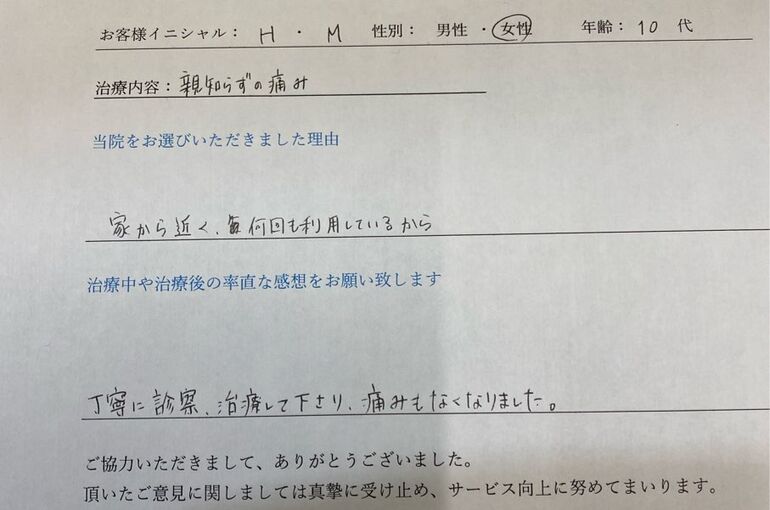 お客様イニシャル： H ・ M 性別： 男性 ・ 女性 年齢： 10 代
治療内容：親知らずの痛み
当院をお選びいただきました理由
家から近く、何回も利用しているから
治療中や治療後の率直な感想をお願い致します
丁寧に診察、治療して下さり、痛みもなくなりました。
ご協力いただきまして、ありがとうございました。
頂いたご意見に関しましては真摯に受け止め、サービス向上に努めてまいります。